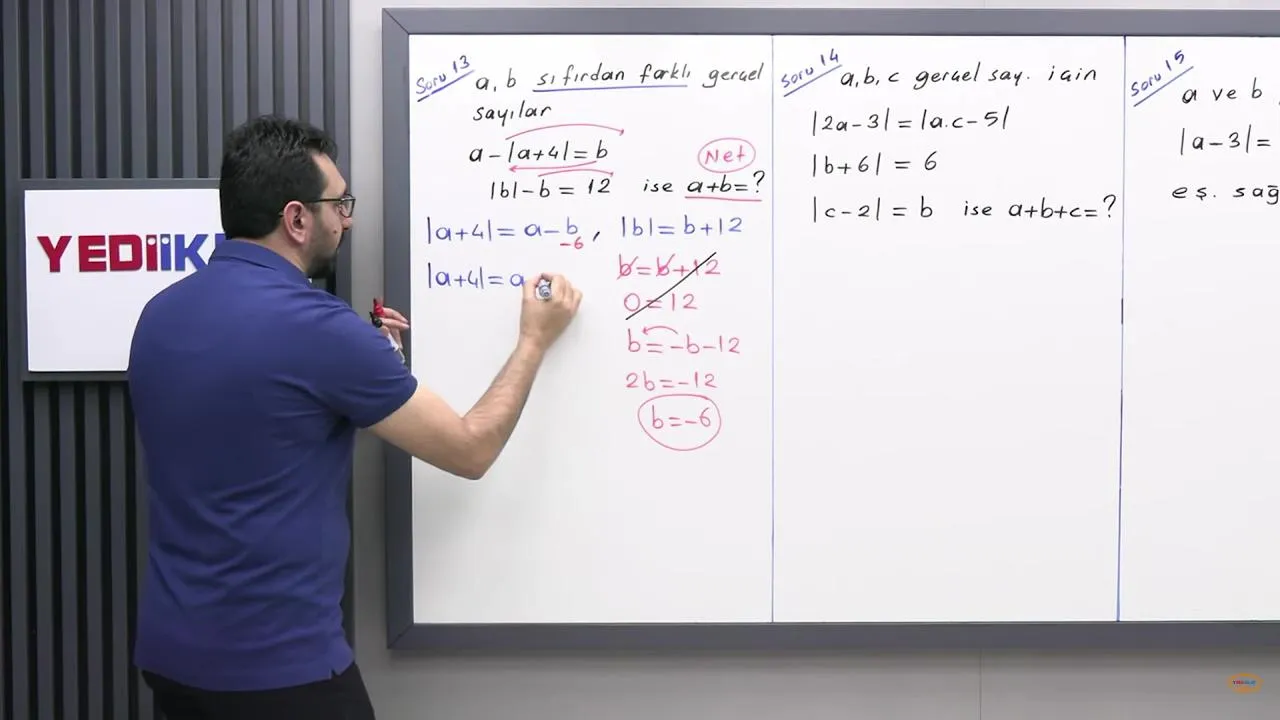 YEDİİK
Soru 13
a, b sıfırdan farklı gerçel
sayılar
a-|a+4|=b
Net
|b|-b=12 ise a+b=?
|a+4|=a-b, |b|=b+12
-6
b=b+12
|a+4|=a
0=12
b=-b-12
2b=-12
b=-6
Soru 14
a,b,c gerçel say. için
|2a-3|=|a.c-5|
|b+6|=6
|c-2|=b ise a+b+c=?
Soru 15
a ve b
|a-3|=
eş. sağ